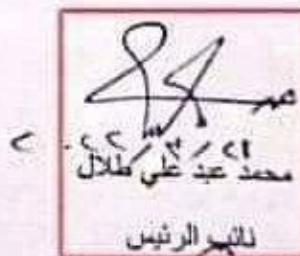 محمد عبد علي طلال
نائب الرئيس